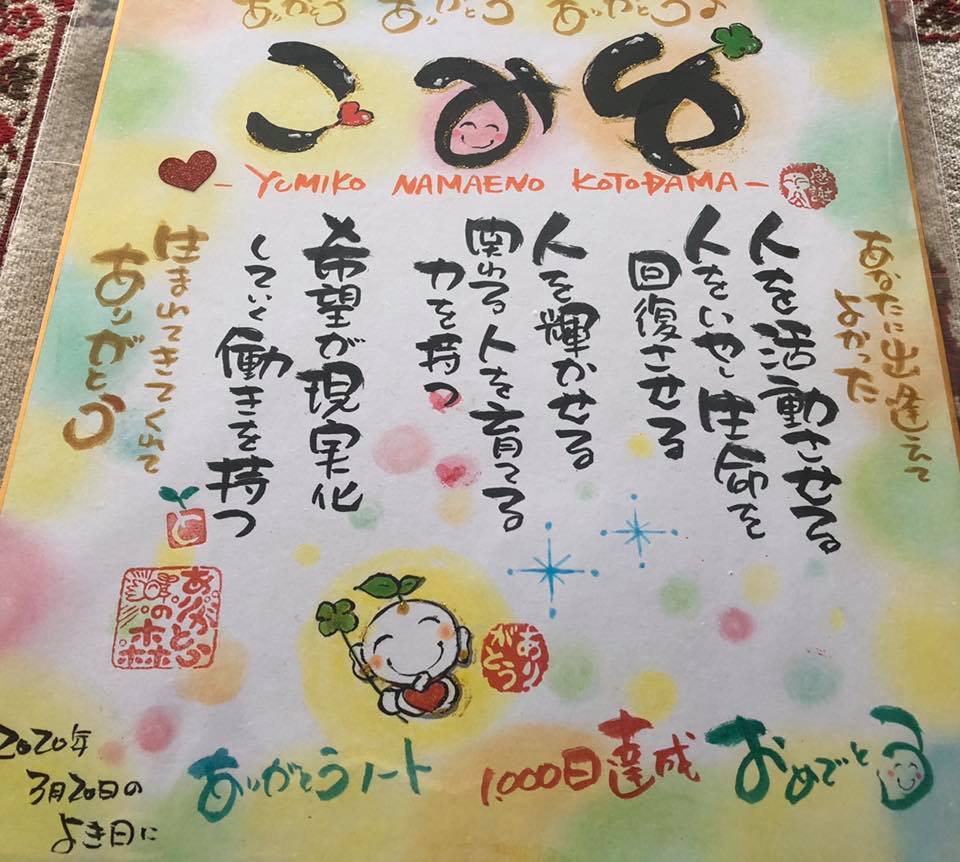 ありがとう ありがとう ありがとう
ゆみこ
- YUMIKO NAMAENO KOTODAMA -
あなたに出逢えて
よかった
人を活動させる。
人をいやし生命を
回復させる
人を輝かせる
関わる人を育てる
力を持つ
希望が現実化
していく働きを持つ
生まれてきてくれて
ありがとう
ありがとう
の森
ありがとう
ありがとうノート 1,000日達成 おめでとう
2020年
3月20日の
よき日に